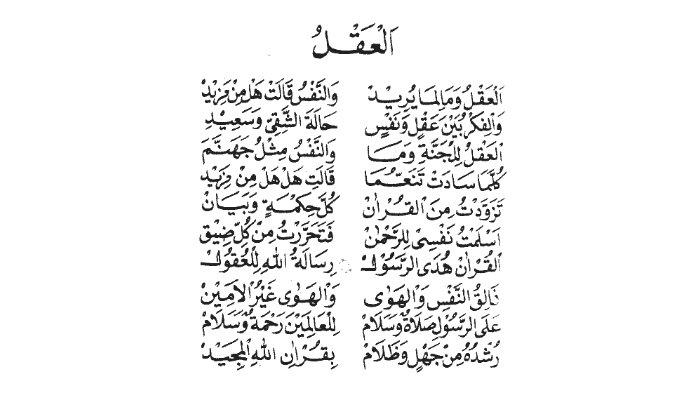 اَلْعَقْلُ
اَلْعَقْلُ وَمَا لِمَا يُرِيْدْ وَالنَّفْسُ قَالَتْ هَلْ مِنْ مَزِيْدْ
وَالْفِكْرُ بَيْنَ عَقْلٍ وَنَفْسٍ حَالَةَ الشَّقِيِّ وَسَعِيْدِ
اَلْعَقْلُ لِلْجَنَّةِ وَمَا وَالنَّفْسُ مِثْلُ جَهَنَّمَ
كُلَّمَا سَادَتْ تَنَعُّمَا قَالَتِ هَلْ هَلْ مِنْ مَزِيْدْ
تَزَوَّدْتُ مِنَ الْقُرْاٰنْ كُلَّ حِكْمَةٍ وَبَيَانْ
اَسْلَمْتُ نَفْسِيْ لِلرَّحْمٰنْ فَتَحَرَّرْتُ مِنْ كُلِّ ضِيْق
اَلْقُرْاٰنْ هُدَى الرَّسُوْلْ رِسَالَةُ اللهِ لِلْعُقُوْلْ
النَّفْسِ وَالْهَوٰى وَالْهَوٰى غَيْرُ الْاَمِيْنْ
عَلَى الرَّسُوْلِ صَلَاةٌ وَسَلَامْ لِلْعَالَمِيْنَ رَحْمَةٌ وَسَلَامْ
رُشْدُهُ مِنْ جَهْلٍ وَظَلَامْ بِقُرْاٰنِ اللهِ الْمَجِيْدْ